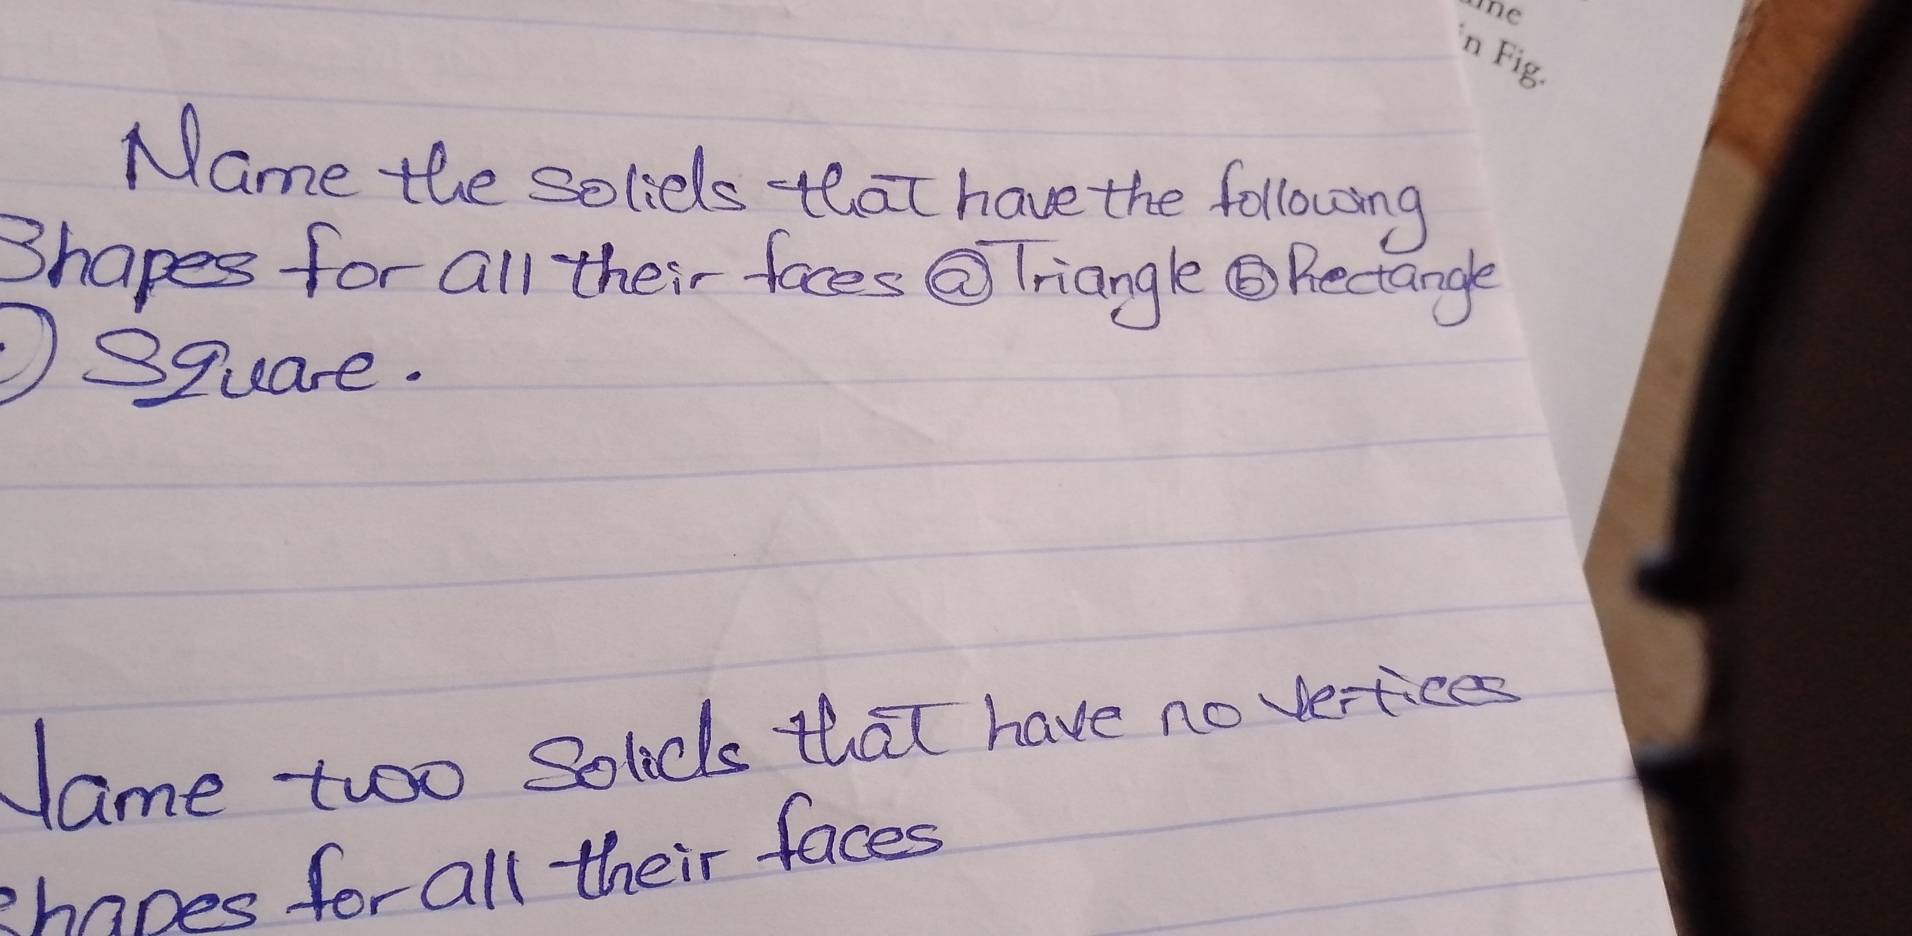 me
in Fig.
Name the solids that have the following
Shapes for all their faces ⓐ Triangle ⓑ Rectangle
Square.
Name two Solids that have no vertices
shapes for all their faces